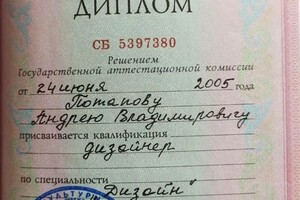 ДИПЛОМ
СБ 5397380
Решением
Государственной аттестационной комиссии
от 24 июня 2005 года
Потапову
Андрею Владимировичу
присваивается квалификация
дизайнер
по специальности
Дизайн"
КУЛЬТУРЫ